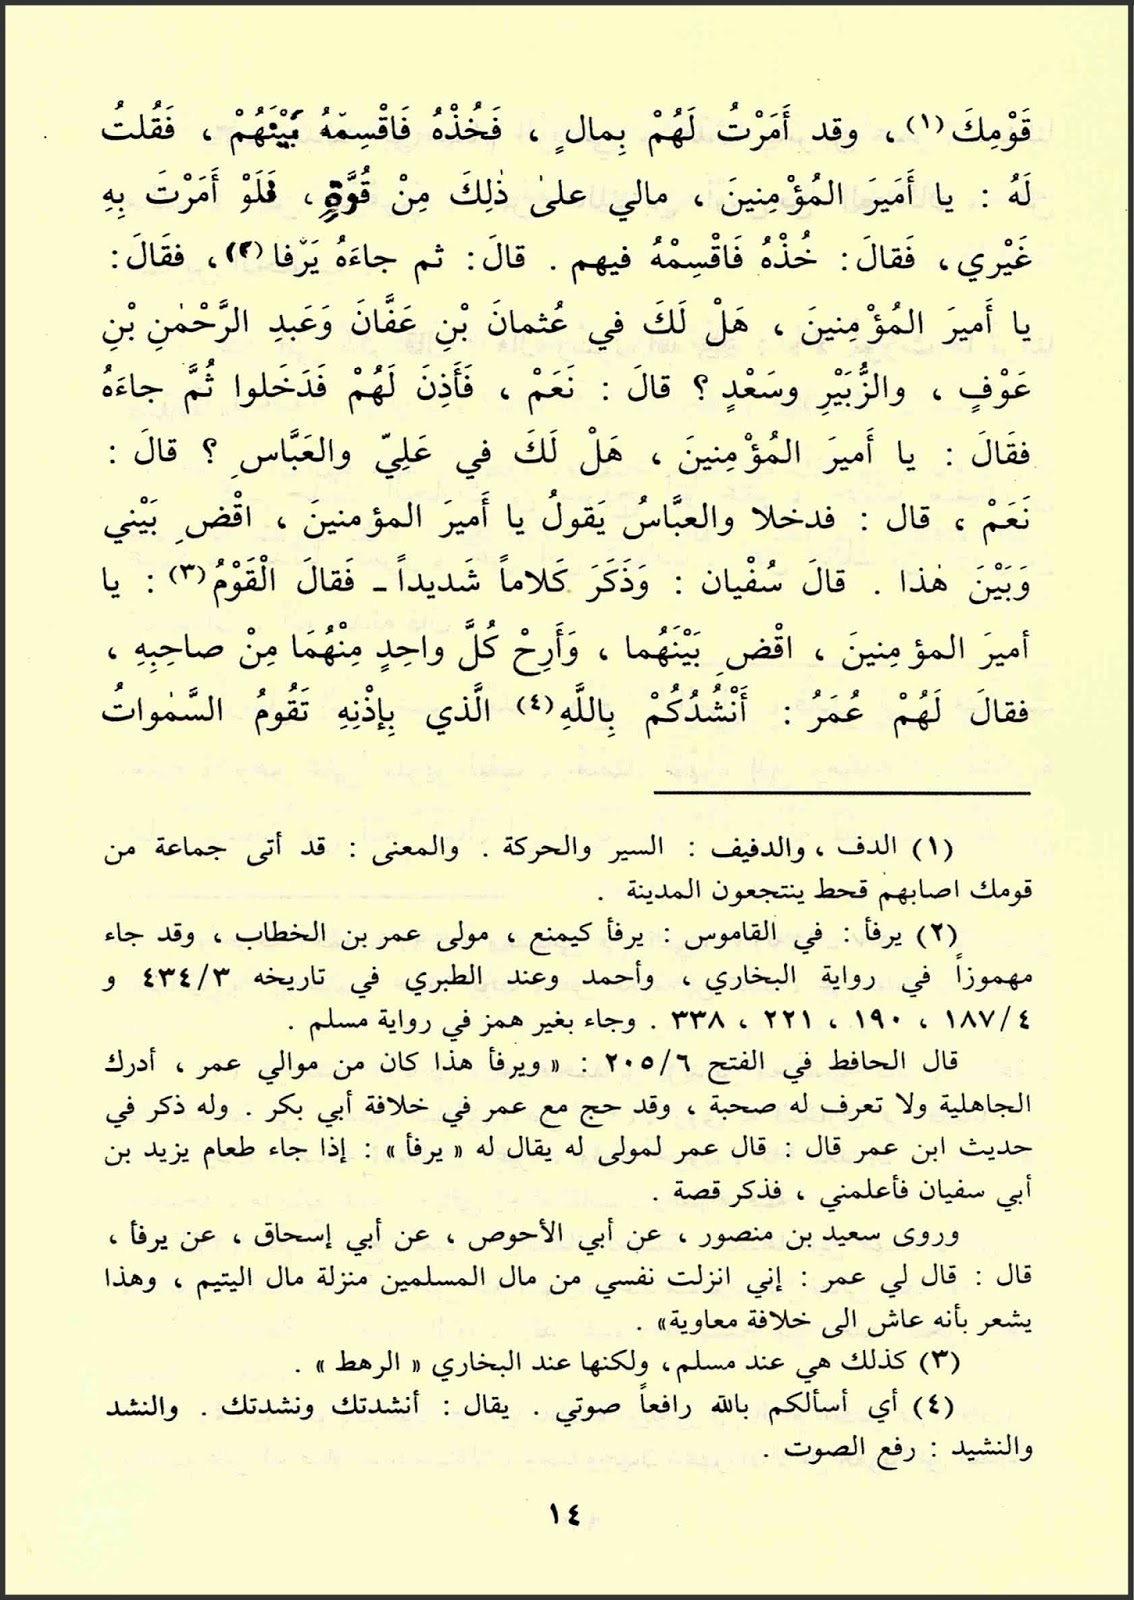 قَوْمِكَ (١) ، وقد أَمَرْتُ لَهُمْ بِمالٍ ، فَخُذْهُ فَاقْسِمْهُ بَيْنَهُمْ ، فَقُلتُ
لَهُ : يا أَمَيرَ المُؤْمِنينَ ، مالي علىٰ ذٰلِكَ مِنْ قُوَّةٍ ، فَلَوْ أَمَرْتَ بِهِ
غَيْري ، فَقالَ : خُذْهُ فَاقْسِمْهُ فيهم . قالَ : ثم جاءَهُ يَرْفا (٢) ، فقَالَ :
يا أَميرَ المُؤْمِنينَ ، هَلْ لَكَ في عُثمانَ بْنِ عَفَّانَ وَعَبدِ الرَّحْمٰنِ بْنِ
عَوْفٍ ، والزُّبَيْرِ وسَعْدٍ ؟ قالَ : نَعَمْ ، فَأَذِنَ لَهُمْ فَدَخَلوا ثُمَّ جاءَهُ
فقَالَ : يا أَميرَ المُؤْمِنينَ ، هَلْ لَكَ في عَلِيّ والعَبَّاسِ ؟ قالَ :
نَعَمْ ، قال : فدخلا والعبَّاسُ يَقولُ يا أَميرَ المؤمنينَ ، اقْضِ بَيْني
وَبَيْنَ هٰذا . قالَ سُفْيان : وَذَكَرَ كَلاماً شَديداً ـ فَقالَ الْقَوْمُ (٣) : يا
أميرَ المؤمِنينَ ، اقْضِ بَيْنَهُما ، وَأَرِحْ كُلَّ واحِدٍ مِنْهُمَا مِنْ صاحِبِهِ ،
فقالَ لَهُمْ عُمَرُ : أَنْشُدُكُمْ بِاللَّهِ (٤) الَّذي بِإذْنِهِ تَقُومُ السَّمٰواتُ
(١) الدف ، والدفيف : السير والحركة . والمعنى : قد أتى جماعة من
قومك اصابهم قحط ينتجعون المدينة .
(٢) يرفأ : في القاموس : يرفأ كيمنع ، مولى عمر بن الخطاب ، وقد جاء
مهموزاً في رواية البخاري ، وأحمد وعند الطبري في تاريخه ٤٣٤/٣ و
١٨٧/٤ ، ١٩٠ ، ٢٢١ ، ٣٣٨ . وجاء بغير همز في رواية مسلم .
قال الحافظ في الفتح ٢٠٥/٦ : « ويرفأ هذا كان من موالي عمر ، أدرك
الجاهلية ولا تعرف له صحبة ، وقد حج مع عمر في خلافة أبي بكر . وله ذكر في
حديث ابن عمر قال : قال عمر لمولى له يقال له « يرفأ » : إذا جاء طعام يزيد بن
أبي سفيان فأعلمني ، فذكر قصة .
وروى سعيد بن منصور ، عن أبي الأحوص ، عن أبي إسحاق ، عن يرفأ ،
قال : قال لي عمر : إني انزلت نفسي من مال المسلمين منزلة مال اليتيم ، وهذا
يشعر بأنه عاش الى خلافة معاوية» .
(٣) كذلك هي عند مسلم ، ولكنها عند البخاري « الرهط » .
(٤) أي أسألكم بالله رافعاً صوتي . يقال : أنشدتك ونشدتك . والنشد
والنشيد : رفع الصوت .
١٤